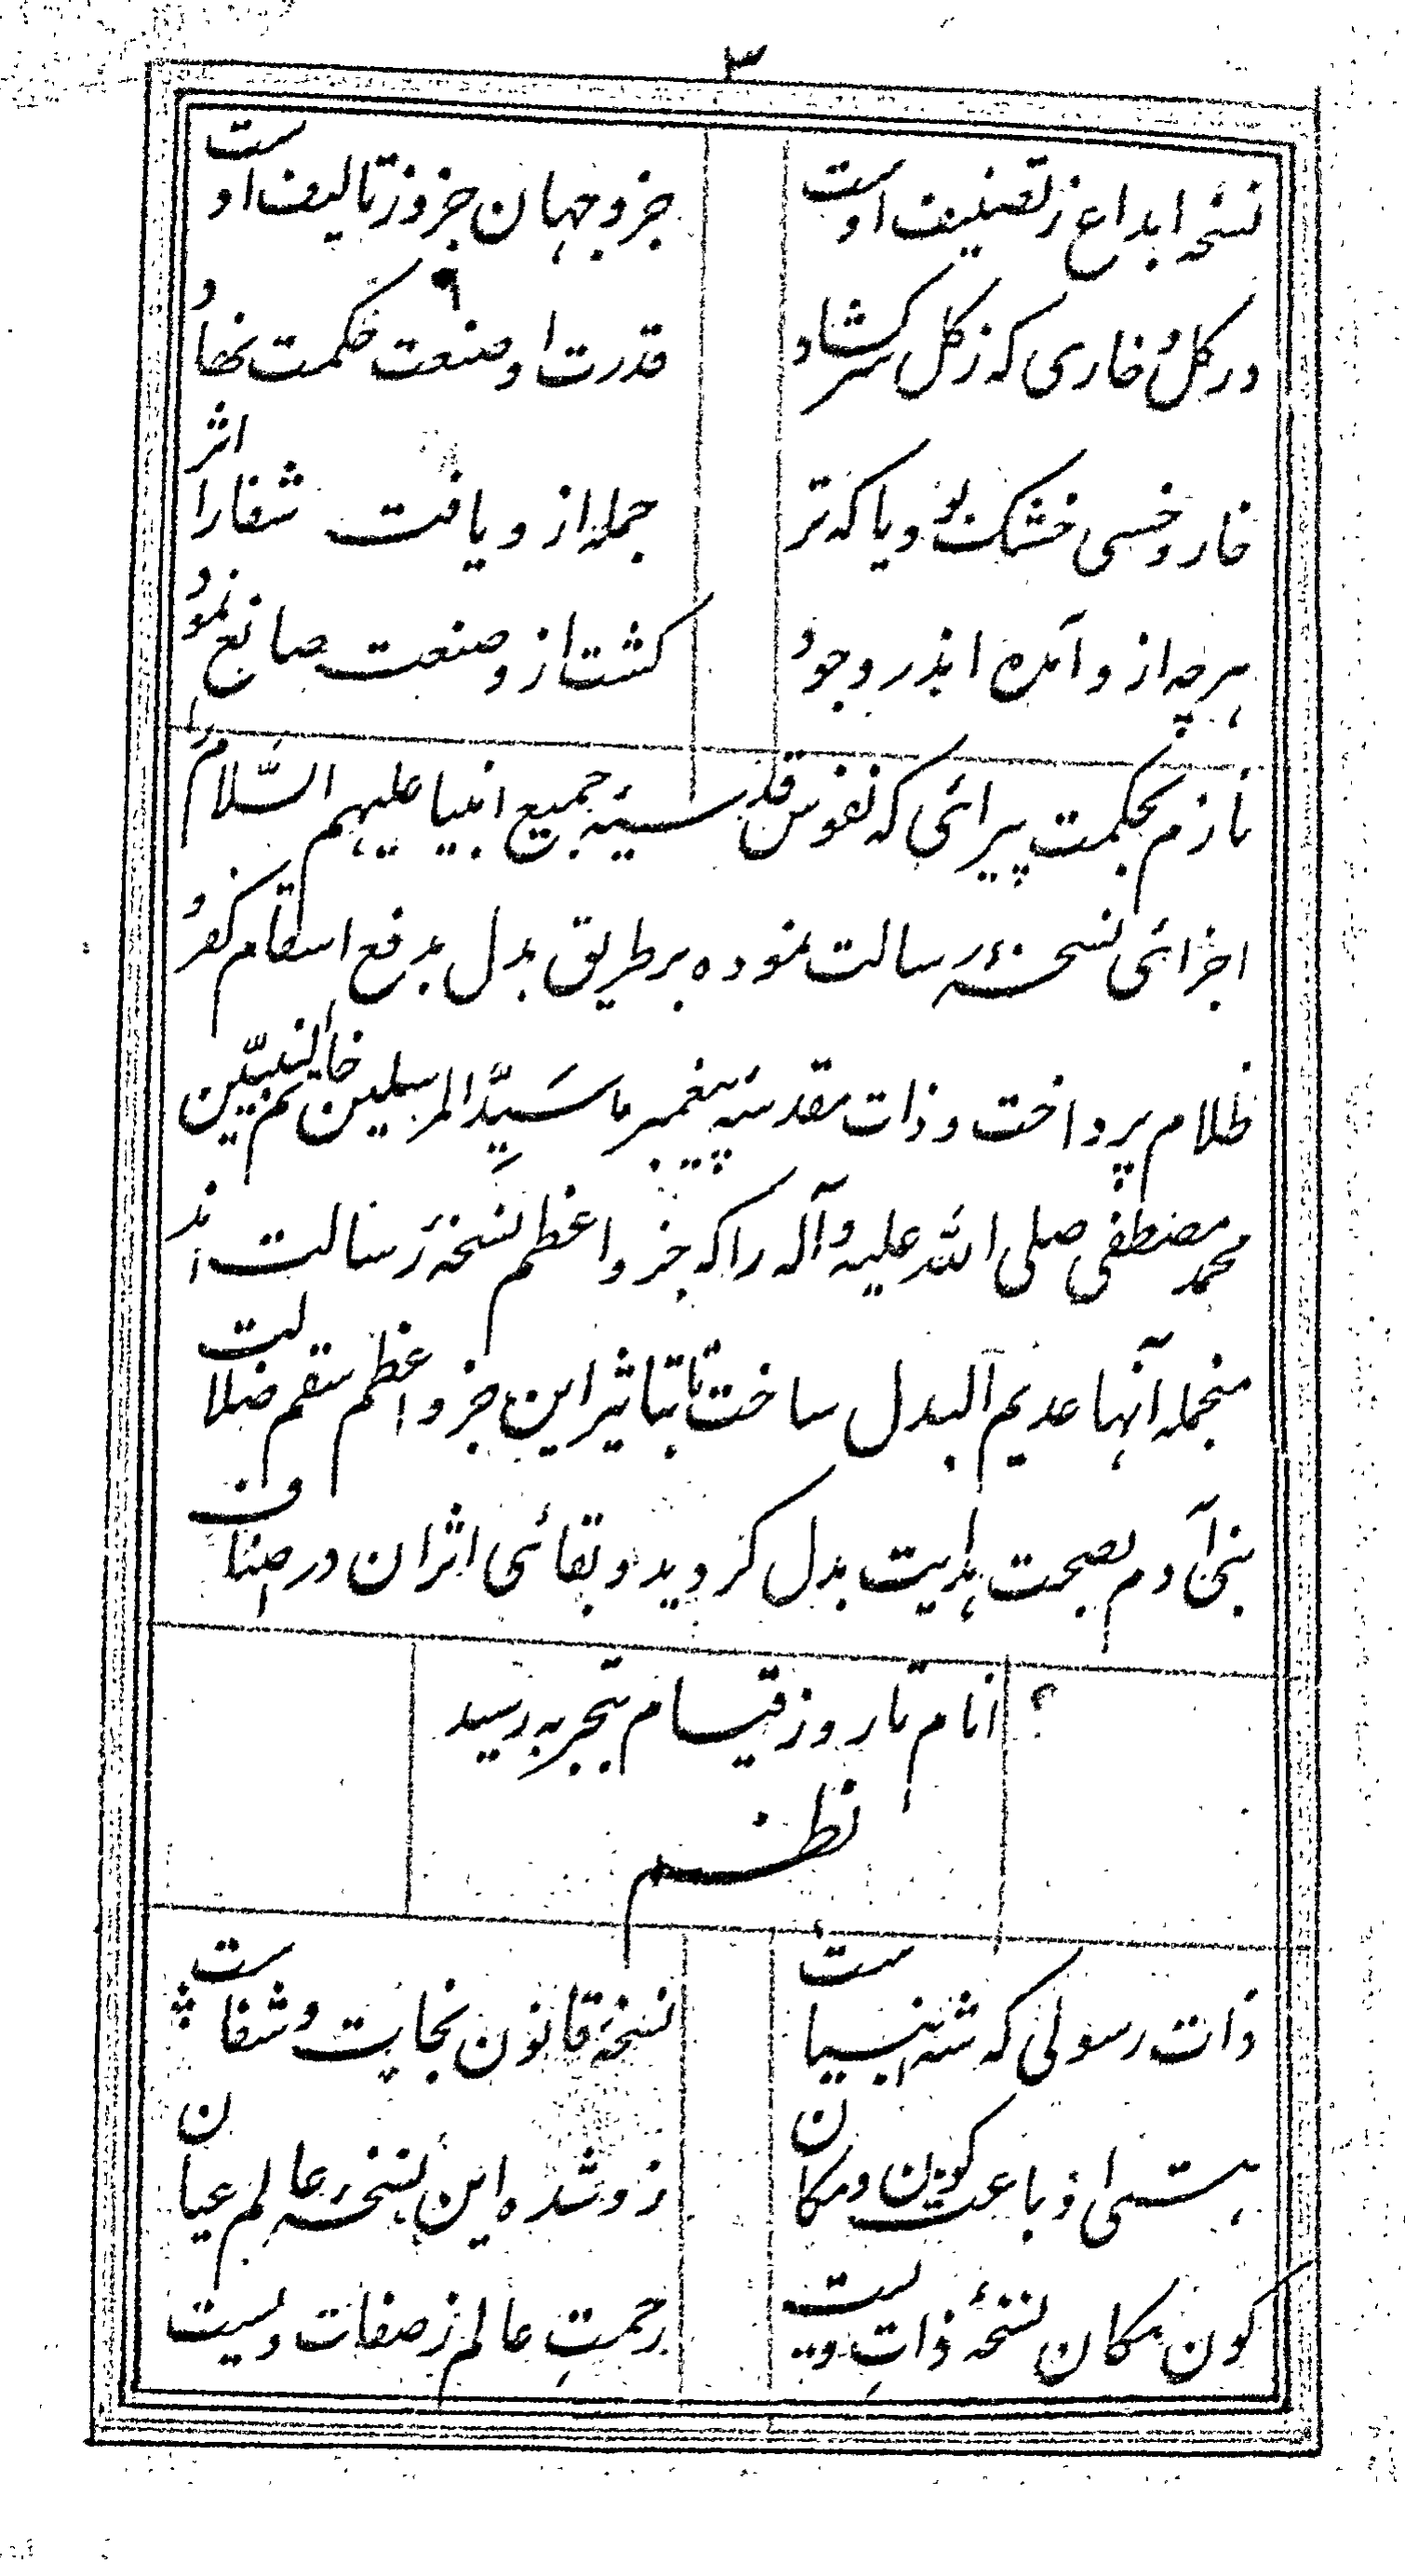 ۳
نسخہ ابداع ز تصنیف اوست جزو جہان جزو ز تالیف اوست
در کل و خاری کہ ز کل سر کشاد قدرت او صنعت حکمت نهاد
خار و خسی خشک بؤد یا کہ تر جملہ از و یافت شفا را اثر
ہرچہ از و آمدہ اندر وجود کشت از و صنعت صانع نمود
نازم بحکمت پیرائی کہ نفوس قدسیئہ جمیع انبیا علیہم السّلام را
اجزائی نسخۂ رسالت نمودہ بر طریق بدل بدفع اسقام کفر و
ظلام پرداخت و ذات مقدسئہ پیغمبر ما سَیِّد المرسلین خاتم النبیّین
محمد مصطفی صلی اللہ علیہ و آلہ را کہ جزو اعظم نسخۂ رسالت اند
منجملہ آنہا عدیم البدل ساخت تا بتاثیر این جزو اعظم سقم ضلالت
بنی آدم بصحت ہدایت بدل کردید و بقائی اثر ان در اصناف
انام تا روز قیام بتجربہ رسید
نظم
ذات رسولی کہ شہ انبیاست نسخۂ قانون نجات و شفاست
ہستی او باعث کون و مکان زو شدہ این نسخۂ عالم عیان
کون مکان نسخۂ ذاتِ ویست رحمتِ عالم ز صفات ویست